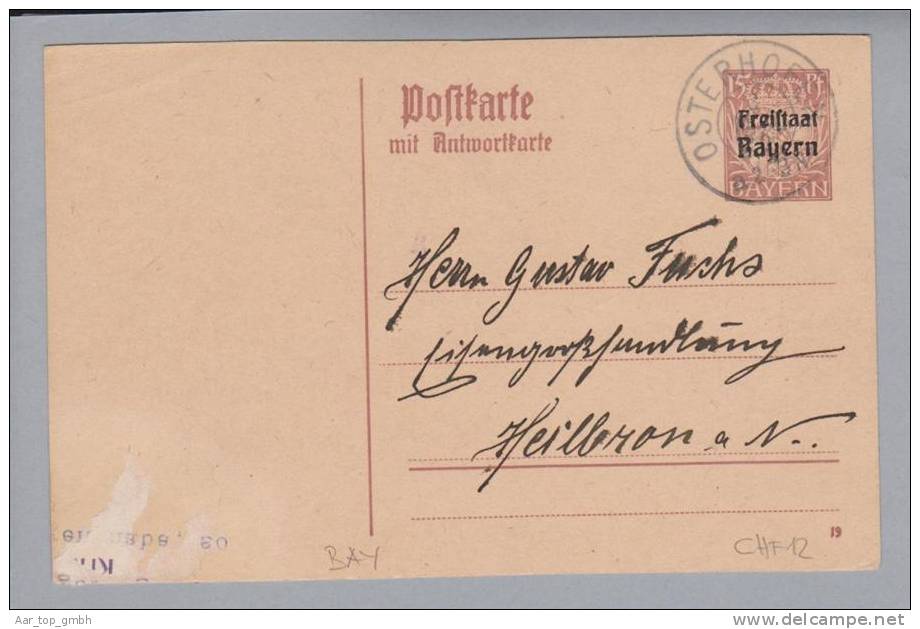 Postkarte
mit Antwortkarte
OSTERHOFEN
15 Pf
Freistaat
Bayern
BAYERN
Herrn Gustav Fuchs
Eisengroßhandlung
Heilbronn a N.
19
BAY
CHF 12
Aar_top_gmbh
www.delcampe.net